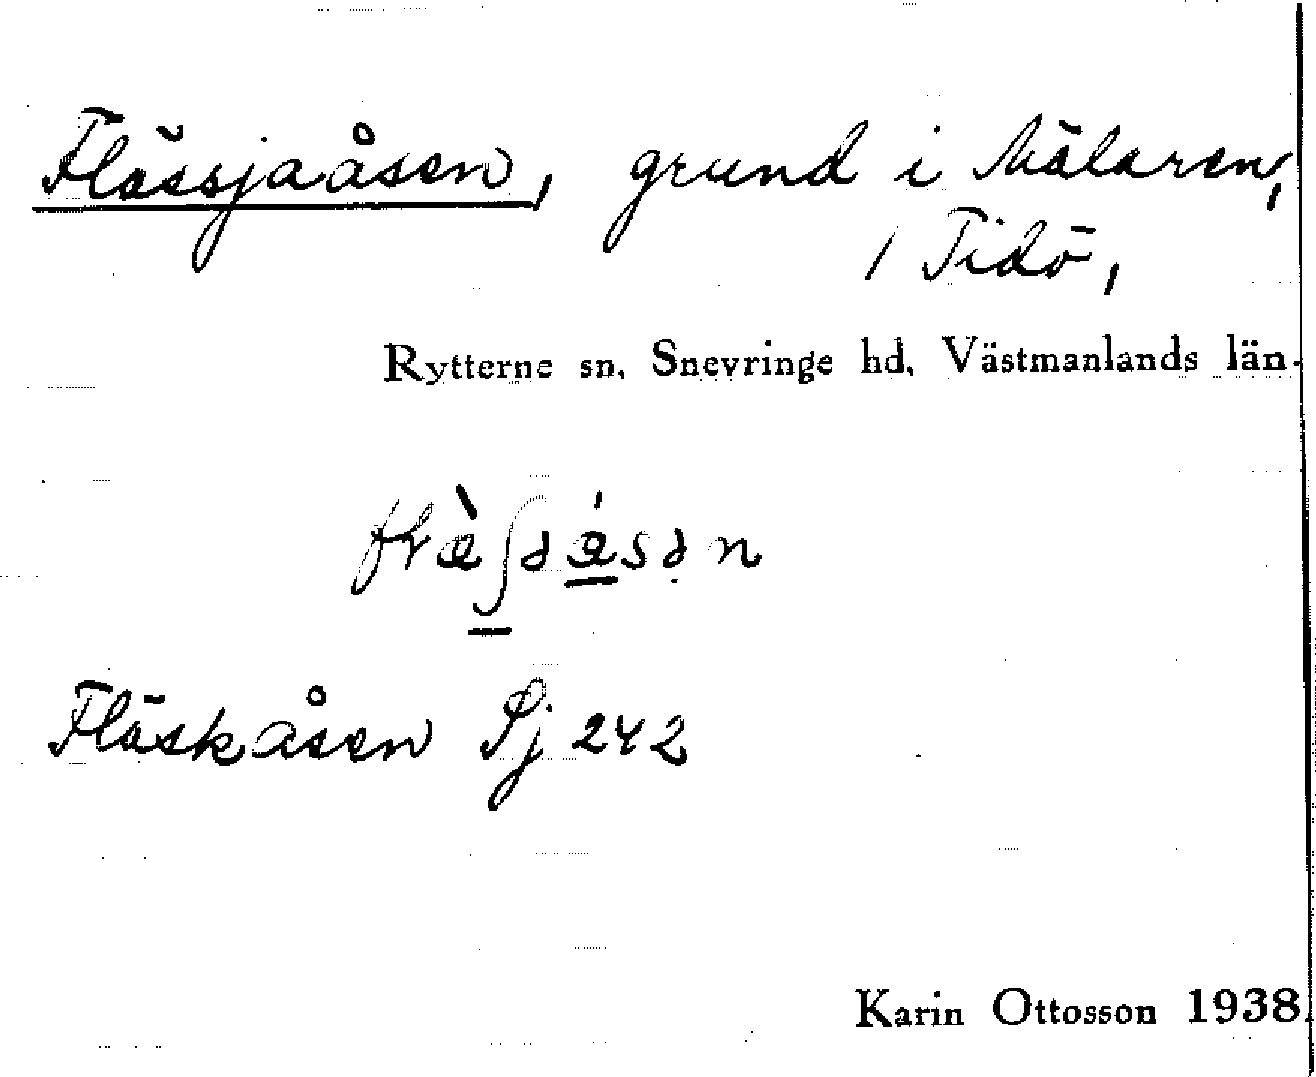 Flässjaåsen, grund i Mälaren,
/ Tidö,
Rytterne sn, Snevringe hd, Västmanlands län.
Fläskåsen Sj 242
Karin Ottosson 1938.